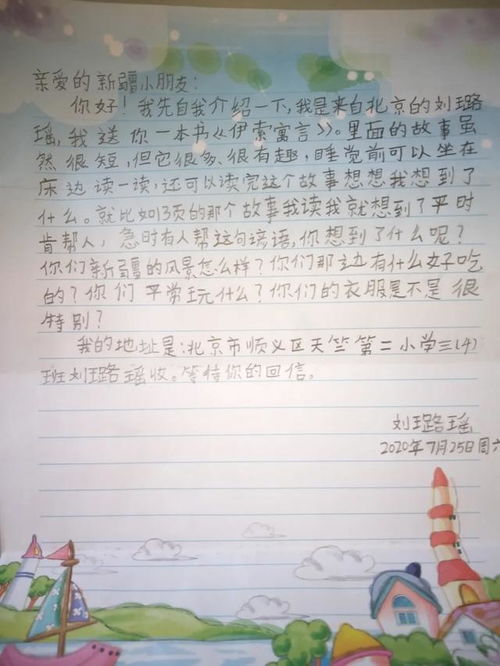 亲爱的新疆小朋友：
你好！我先自我介绍一下，我是来自北京的刘璐
瑶，我送你一本书《伊索寓言》。里面的故事虽
然很短，但它很多、很有趣，睡觉前可以坐在
床边读一读，还可以读完这个故事想想我想到了
什么。就比如13页的那个故事我读我就想到了平时
肯帮人，急时有人帮这句谚语，你想到了什么呢？
你们新疆的风景怎么样？你们那边有什么好吃
的？你们平常玩什么？你们的衣服是不是很
特别？
我的地址是：北京市顺义区天竺第二小学三(4)
班刘璐瑶收。等待你的回信。
刘璐瑶
2020年7月25日周六